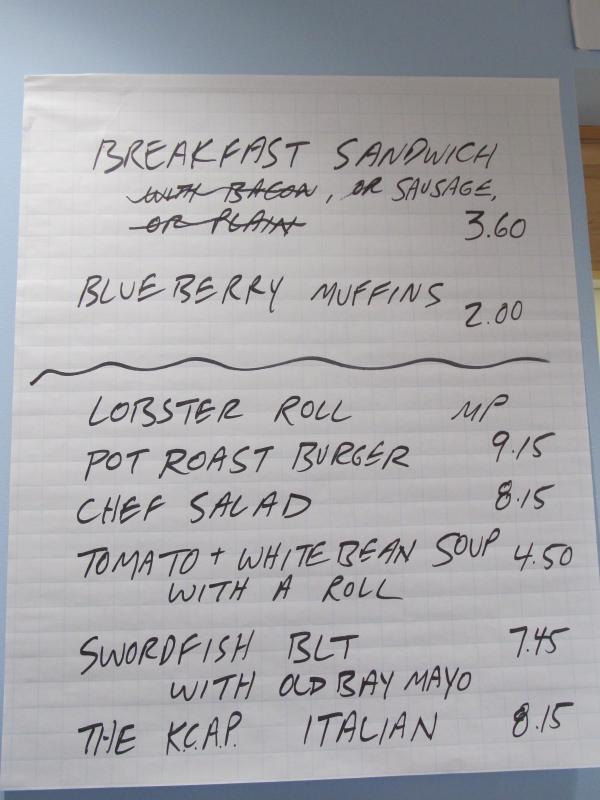 BREAKFAST SANDWICH
WITH BACON, OR SAUSAGE,
OR PLAIN 3.60
BLUEBERRY MUFFINS 2.00
LOBSTER ROLL MP
POT ROAST BURGER 9.15
CHEF SALAD 8.15
TOMATO + WHITE BEAN SOUP 4.50
WITH A ROLL
SWORDFISH BLT 7.45
WITH OLD BAY MAYO
THE K.C.A.P. ITALIAN 8.15